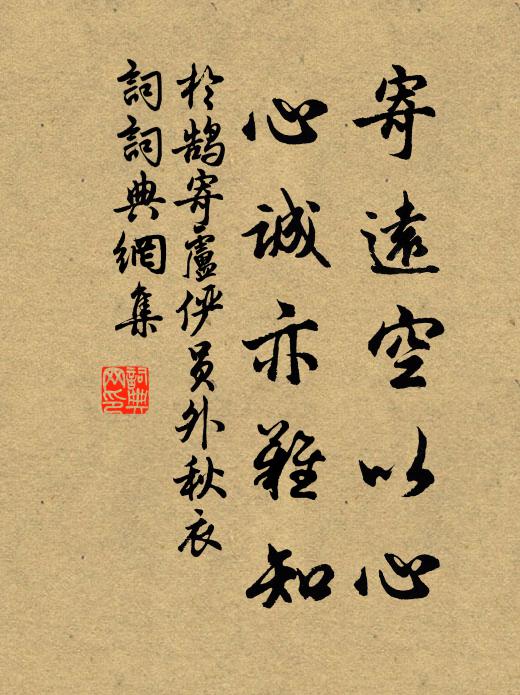 寄遠空以心
心誠亦難知
於鵠寄盧俨員外秋衣
詞詞典網集
詞典网印